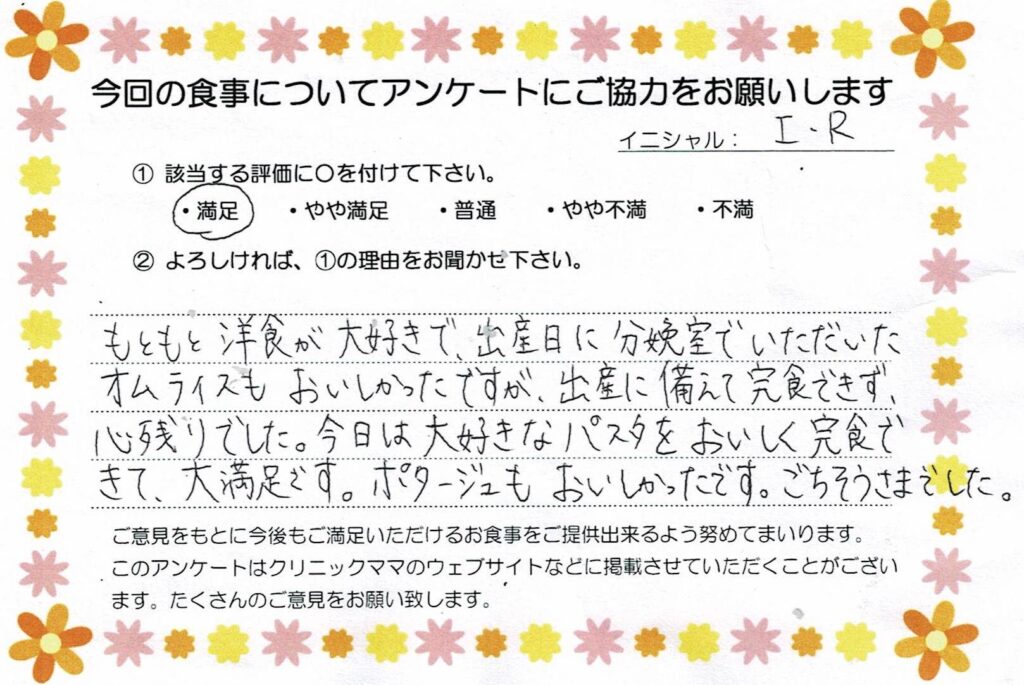 今回の食事についてアンケートにご協力をお願いします
イニシャル： I・R
① 該当する評価に〇を付けて下さい。
・満足 ・やや満足 ・普通 ・やや不満 ・不満
② よろしければ、①の理由をお聞かせ下さい。
もともと洋食が大好きで、出産日に分娩室でいただいた
オムライスもおいしかったですが、出産に備えて完食できず、
心残りでした。今日は大好きなパスタをおいしく完食で
きて、大満足です。ポタージュもおいしかったです。ごちそうさまでした。
ご意見をもとに今後もご満足いただけるお食事をご提供出来るよう努めてまいります。
このアンケートはクリニックママのウェブサイトなどに掲載させていただくことがござい
ます。たくさんのご意見をお願い致します。